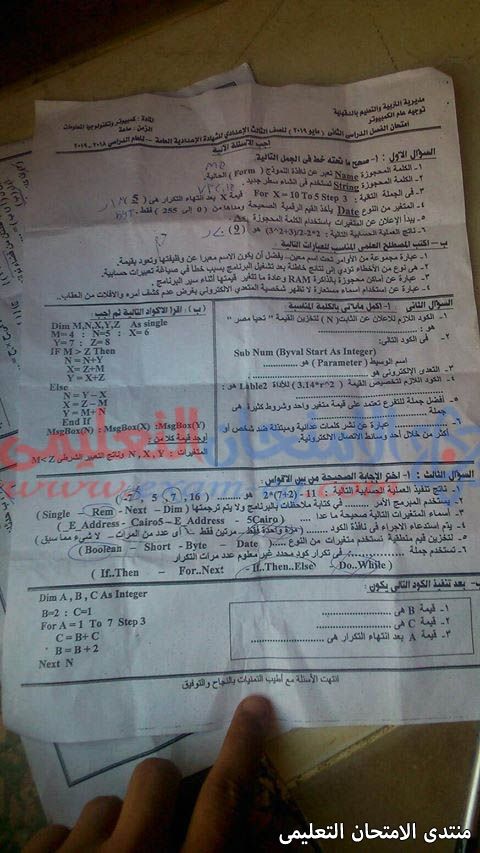 مديرية التربية والتعليم بالدقهلية
توجيه عام الكمبيوتر
المادة: كمبيوتر وتكنولوجيا المعلومات
الزمن: ساعة
امتحان الفصل الدراسى الثانى ( مايو ٢٠١٩ ) للصف الثالث الإعدادي للشهادة الإعدادية العامة – للعام الدراسي ٢٠١٨ – ٢٠١٩
أجب الأسئلة الآتية
السؤال الأول : ١- صحح ما تحته خط فى الجمل التالية:
١- الكلمة المحجوزة Name تعبر عن نافذة النموذج ( Form ) الحالية.
٢- الكلمة المحجوزة String تستخدم فى إنشاء سطر جديد.
٣- فى الجملة التالية : For X = 10 To 5 Step 3 قيمة X بعد انتهاء التكرار هى ( 5 )
٤- المتغير من النوع Date يأخذ القيم الرقمية الصحيحة ومداها من ( 0 إلى 255 ) فقط.
٥- يبدأ الإعلان عن المتغيرات باستخدام الكلمة المحجوزة
٦- ناتج العملية الحسابية التالية : 2*2-2/(3+2^3) هو ( 9 )
ب – اكتب المصطلح العلمى المناسب للعبارات التالية :
١- عبارة مجموعة من الأوامر تحت اسم معين- يفضل أن يكون الاسم معبرا عن وظيفتها وتعود بقيمة.
٢- هى نوع من الأخطاء تؤدى إلى نتائج خاطئة بعد تشغيل البرنامج بسبب خطأ فى صياغة تعبيرات حسابية.
٣- عبارة عن أماكن محجوزة بالذاكرة RAM وعادة ما تتغير قيمتها أثناء سير البرنامج .
٤- عبارة عن استخدام أسماء مستعارة لا تظهر شخصية المتعدى الالكترونى بغرض عدم كشف أمره والإفلات من العقاب.
السؤال الثانى : ١- أكمل ما يأتى بالكلمة المناسبة
١- الكود اللازم للإعلان عن الثابت( N ) لتخزين القيمة " تحيا مصر "
هو : ..............
٢- فى الكود التالى:
Sub Num (Byval Start As Integer)
اسم الوسيط ( Parameter ) هو ..............
٣- التعدى الإلكترونى هو ..............
٤- الكود اللازم لتخصيص القيمة ( 3.14*r^2 ) للأداة Lable2 هو :
٥- أفضل جملة للتفرع تعتمد على قيمة متغير واحد وشروط كثيرة هى
جملة ..............
٦- .............. عبارة عن نشر كلمات عدائية ومبتذلة ضد شخص أو
أكثر من خلال أحد وسائط الاتصال الالكترونية.
( ب ) : اقرأ الأكواد التالية ثم أجب :
Dim M,N,X,Y,Z As single
M= 4 : N=5 : X=6
Y=7 : Z=8
IF M > Z Then
N = N+Y
X= Z+M
Y = X+Z
Else
N = Y – X
X = Z – M
Y = M+ N
End If
MsgBox(N) : MsgBox(X) :MsgBox(Y)
أوجد قيمة كلا من :
المتغيرات : N , X , Y وناتج التعبير الشرطى M< Z
السؤال الثالث : ١- اختر الإجابة الصحيحة من بين الأقواس
١- ناتج تنفيذ العملية الحسابية التالية : 11 - (2+7)*2 هو ........ ( 16 , 7 , 5 , 7- )
٢- يستخدم المبرمج الأمر ........ فى كتابة ملاحظات بالبرنامج ولا يتم ترجمتها ( Single – Rem - Next – Dim )
٣- أسماء المتغيرات التالية صحيحة ما عدا ........ ( _E_Address - Cairo5 – E_Address - 5Cairo )
٤- يتم استدعاء الإجراء فى نافذة الكود ........ ( مرة واحدة فقط- مرتين فقط – لأى عدد من المرات – لا شىء مما سبق )
٥- لتخزين قيم منطقية نستخدم متغيرات من النوع ........ ( Boolean – Short - Byte – Date )
٦- تستخدم جملة ........ فى تكرار كود محدد غير معلوم عدد مرات التكرار
( If..Then – For..Next - If..Then..Else – Do..While )
ب- بعد تنفيذ الكود التالى يكون:
١- قيمة B هى ..............
٢- قيمة C هى ..............
٣- قيمة A بعد انتهاء التكرار هى ..............
Dim A , B , C As Integer
B=2 : C=1
For A = 1 To 7 Step 3
C = B+ C
B = B + 2
Next N
انتهت الأسئلة مع أطيب التمنيات بالنجاح والتوفيق
منتدى الامتحان التعليمى